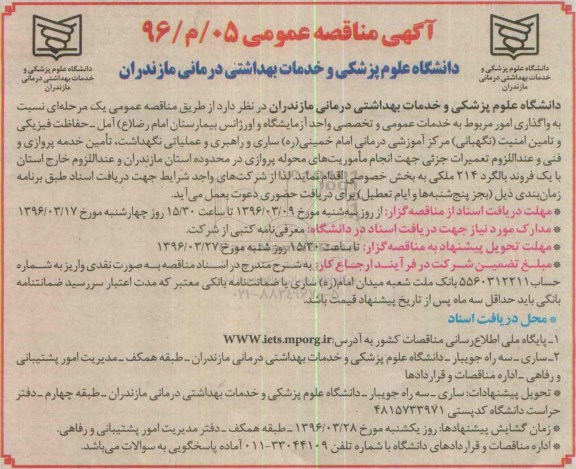 آگهی مناقصه عمومی ۰۵/م/۹۶
دانشگاه علوم پزشکی و خدمات بهداشتی درمانی مازندران
دانشگاه علوم پزشکی و
خدمات بهداشتی درمانی
مازندران
دانشگاه علوم پزشکی و
خدمات بهداشتی درمانی
مازندران
دانشگاه علوم پزشکی و خدمات بهداشتی درمانی مازندران در نظر دارد از طریق مناقصه عمومی یک مرحله‌ای نسبت
به واگذاری امور مربوط به خدمات عمومی و تخصصی واحد آزمایشگاه و اورژانس بیمارستان امام رضا(ع) آمل ـ حفاظت فیزیکی
و تامین امنیت (نگهبانی) مرکز آموزشی درمانی امام خمینی(ره) ساری و راهبری و عملیاتی نگهداشت، تأمین خدمه پروازی و
فنی و عنداللزوم تعمیرات جزئی جهت انجام مأموریت‌های محوله پروازی در محدوده استان مازندران و عنداللزوم خارج استان
با یک فروند بالگرد ۲۱۴ ملکی به بخش خصوصی اقدام نماید. لذا از شرکت‌های واجد شرایط جهت دریافت اسناد طبق برنامه
زمان‌بندی ذیل (بجز پنج‌شنبه‌ها و ایام تعطیل) برای دریافت حضوری دعوت بعمل می‌آید.
* مهلت دریافت اسناد از مناقصه‌گزار: از روز سه‌شنبه مورخ ۱۳۹۶/۰۳/۰۹ تا ساعت ۱۵/۳۰ روز چهارشنبه مورخ ۱۳۹۶/۰۳/۱۷
* مدارک مورد نیاز جهت دریافت اسناد در دانشگاه: معرفی‌نامه کتبی از شرکت.
* مهلت تحویل پیشنهاد به مناقصه‌گزار: تا ساعت ۱۵/۳۰ روز شنبه مورخ ۱۳۹۶/۰۳/۲۷
* مبلغ تضمین شرکت در فرآیند ارجاع کار: به شرح مندرج در اسناد مناقصه به صورت نقدی واریز به شماره
حساب ۵۵۶۰۳۱۲۲۱۱ بانک ملت شعبه میدان امام(ره) ساری یا ضمانت‌نامه بانکی معتبر که مدت اعتبار سررسید ضمانتنامه
بانکی باید حداقل سه ماه پس از تاریخ پیشنهاد قیمت باشد.
* محل دریافت اسناد
۱ـ پایگاه ملی اطلاع‌رسانی مناقصات کشور به آدرس: WWW.iets.mporg.ir
۲ـ ساری ـ سه راه جویبار ـ دانشگاه علوم پزشکی و خدمات بهداشتی درمانی مازندران ـ طبقه همکف ـ مدیریت امور پشتیبانی
و رفاهی ـ اداره مناقصات و قراردادها
* تحویل پیشنهادات: ساری ـ سه راه جویبار ـ دانشگاه علوم پزشکی و خدمات بهداشتی درمانی مازندران ـ طبقه چهارم ـ دفتر
حراست دانشگاه کدپستی ۴۸۱۵۷۳۳۹۷۱
* زمان گشایش پیشنهادها: روز یکشنبه مورخ ۱۳۹۶/۰۳/۲۸ ـ طبقه همکف ـ دفتر مدیریت امور پشتیبانی و رفاهی.
* اداره مناقصات و قراردادهای دانشگاه با شماره تلفن ۳۳۰۴۴۱۰۹-۰۱۱ آماده پاسخگویی به سوالات می‌باشد.